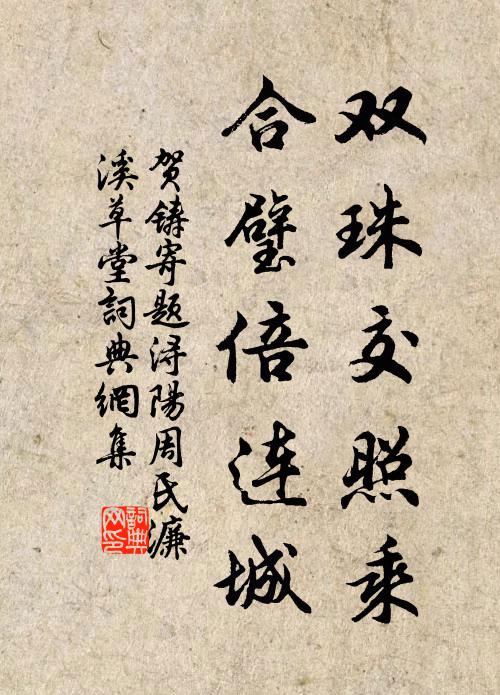 双珠交照乘
合璧倍连城
贺铸寄题浔陽周氏濂
溪草堂詞典網集
詞典网印